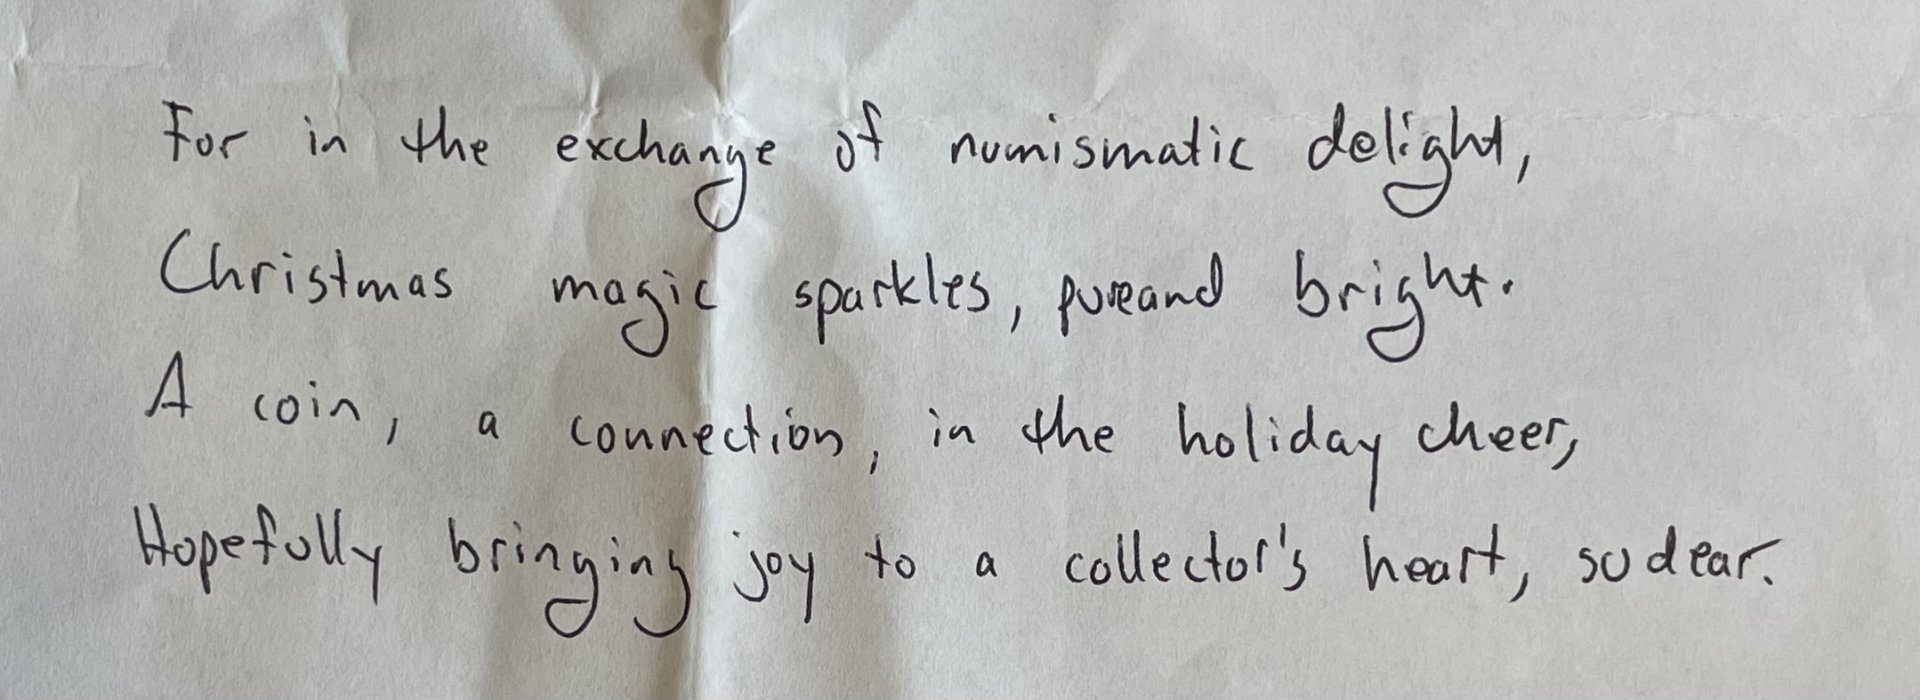 For in the exchange of numismatic delight,
Christmas magic sparkles, pure and bright.
A coin, a connection, in the holiday cheer,
Hopefully bringing joy to a collector's heart, so dear.